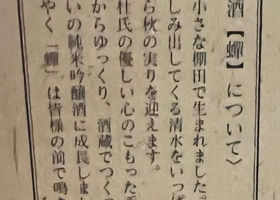 酒【蟬】について〉
小さな棚田で生まれました。
しみ出してくる清水をいっぱ
ら秋の実りを迎えます。
杜氏の優しい心のこもった
からゆっくり、酒蔵でつくつ
いの純米吟醸酒に成長しまし
やく「蟬」は皆様の前で鳴き